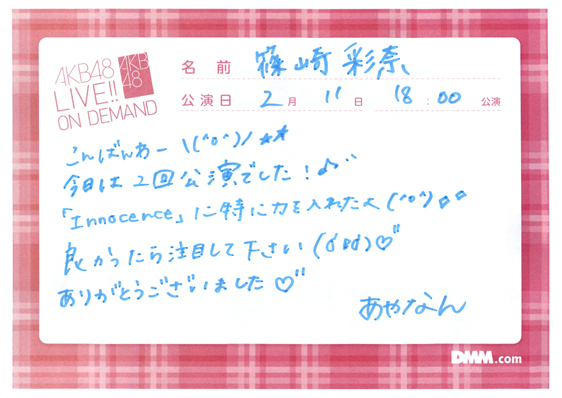 AKB48
LIVE!!
ON DEMAND
AKB
48
名前 篠崎彩奈
公演日 2月11日 18:00公演
こんばんわー \(^o^)/★★
今日は2回公演でした!♪
「Innocence」に特に力を入れたよ(^o^)
良かったら注目して下さい♡
ありがとうございました♡
あやなん
DMM.com